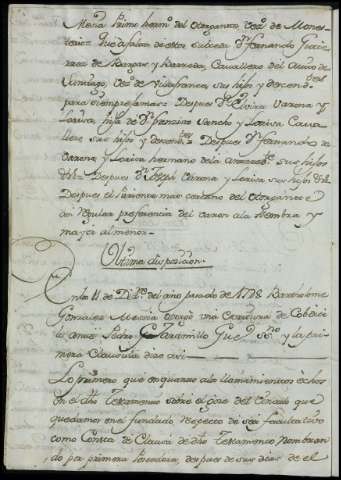 Mexia Primo herm.o del otorgante, Vez.o de Mones
terio: que a falta de estos suceda D.n Fernando Gutie
rrez de Vargas y Barreda, Cavallero del Avito de
Santiago, Vez.o de Villafranca, sus hijos y descend.tes
para siempre jamas: Despues D.a Elvira Varona y
Loaisa, hija de D.n Francisco Sancho y Loaisa Cava
llero sus hijos y descend.tes Despues D.n Fernando de
Varona y Loaisa hermano de la antecedente sus hijos
Despues D.n Joseph Varona y Loaisa sus hijos
Despues el Pariente mas cercano del otorgante
regular preferencia del varon a la hembra y
mayor al menor.
Ultima disposicion.
En la 11 de Diz.re del año pasado de 1728 Bartholome
Gonzalez Mexia otorgó una Escritura de Cobdici
lo ante Pedro Jaramillo Guerr.o SS.no y la pri
mera clausula dice asi
Lo primero que en quanto a los llamamientos echos
en el dho Testamento sobre el goze del vinculo que
quedamos en él fundado respecto de ser facultativo
como consta de clausula de dho Testamento, nombran
do por primera Posedora, despues de sus dias de el